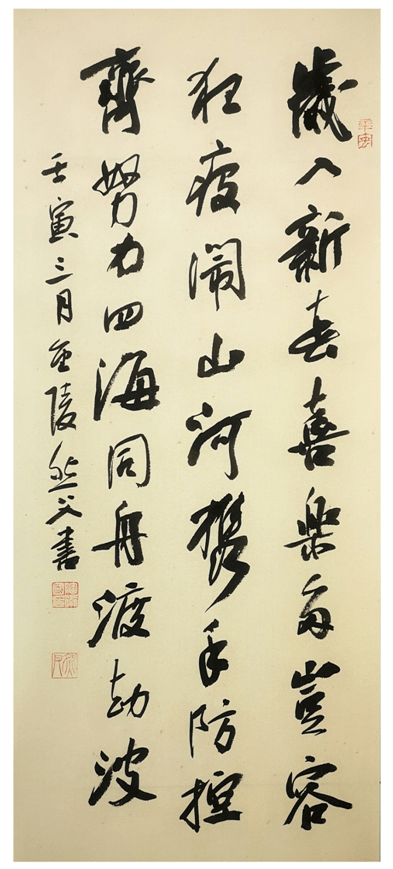 歲入新春喜樂多豈容
狂疫鬧山河攜手防控
齊努力四海同舟渡劫波
壬寅三月金陵 父書